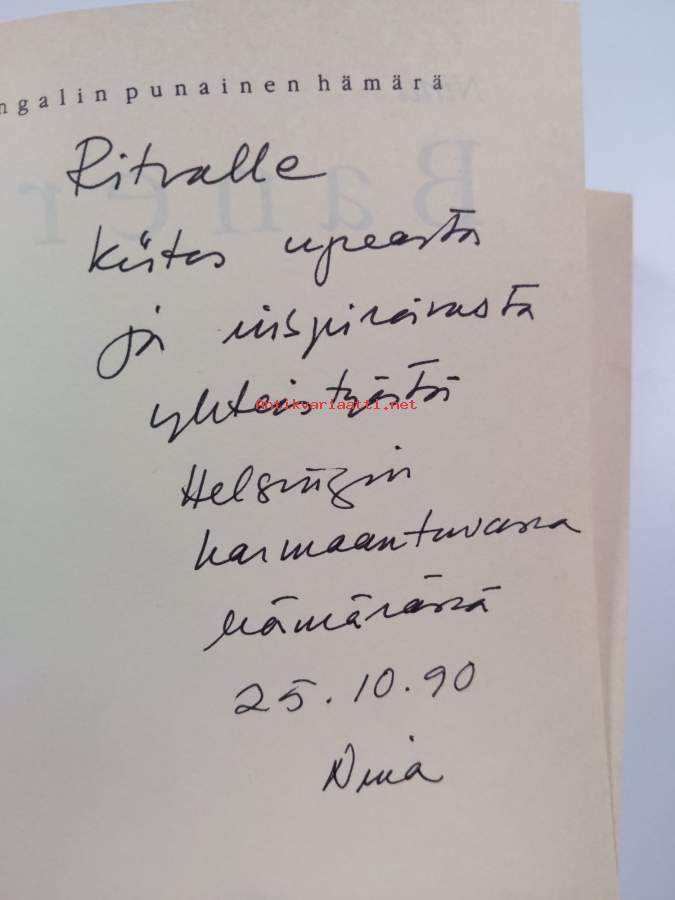 ngalin punainen hämärä
Ritvalle
kiitos upeasta
ja inspiroivasta
yhteistyöstä
Antikvariaatti.net
Helsingin
harmaantuvassa
hämärässä
25.10.90
Nina